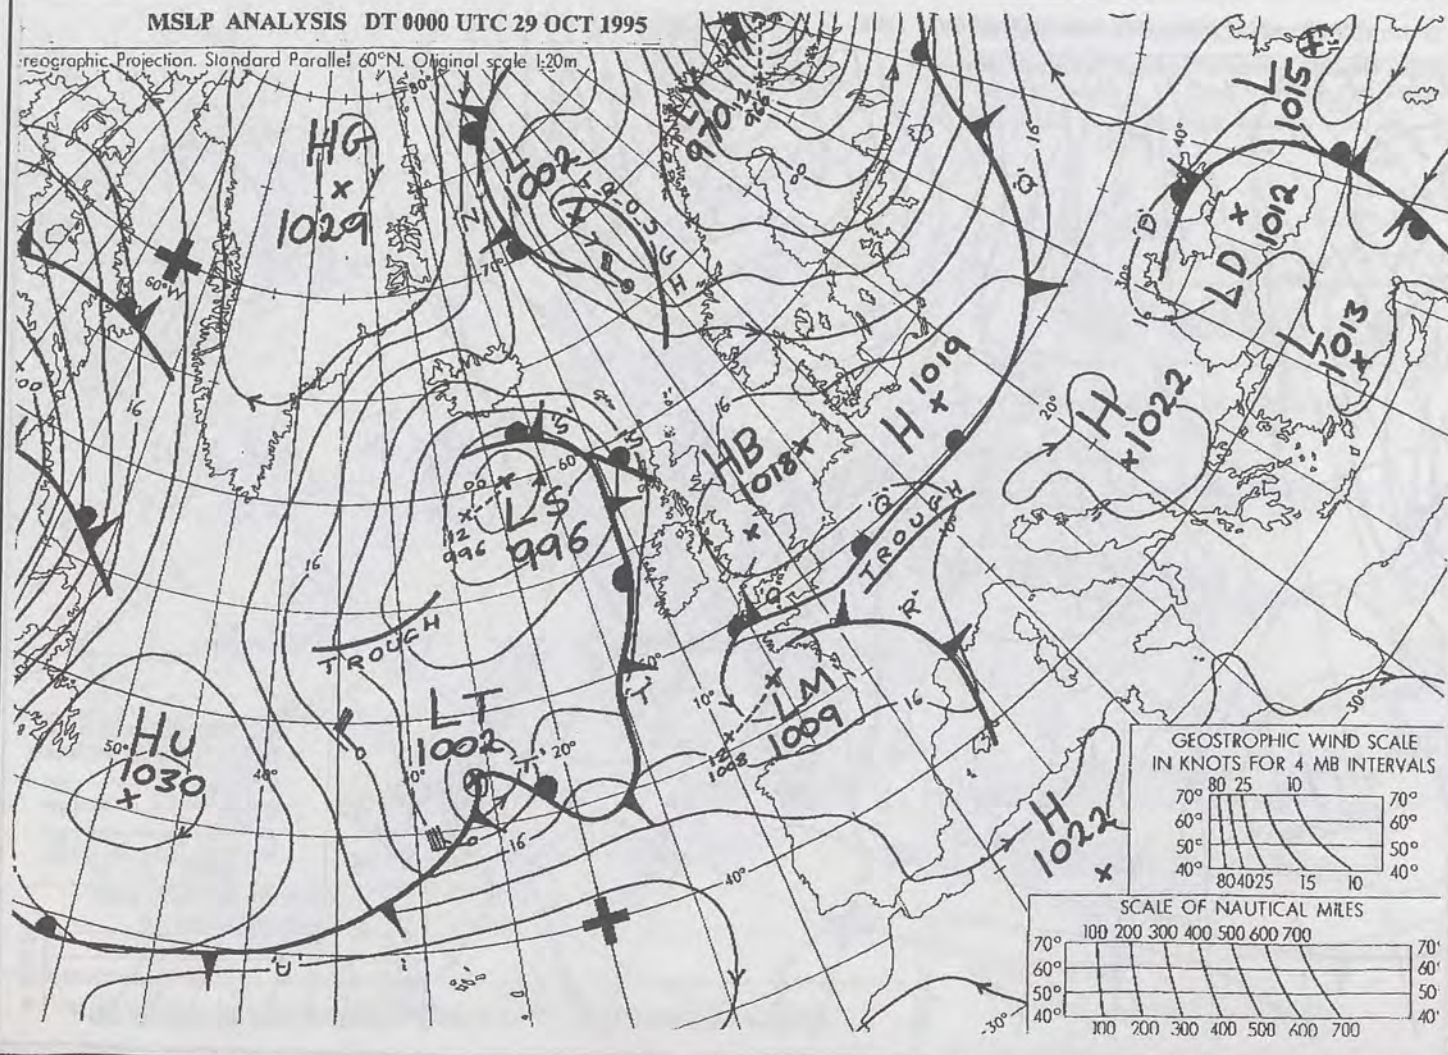 MSLP ANALYSIS DT 0000 UTC 29 OCT 1995
reographic Projection. Standard Parallel 60°N. Original scale 1:20m
80°
HG
1029
L
1002
TROUGH
970
12
L
1015
40°
16
'Q'
'D'
LD
1012
30°
16
L
1013
60°W
70°
16
H 1019
20°
H
1022
HB
1018
'S'
00
60°
LS
996
12
996
16
'Q'
TROUGH
10°
'Q'
TROUGH
'R'
'T'
10°
LM
1009
16
12
1008
LT
1002
'T'
20°
30°
16
HU
1030
50°
40°
40°
'U'
H
1022
30°
GEOSTROPHIC WIND SCALE
IN KNOTS FOR 4 MB INTERVALS
80 25 10
70° 70°
60° 60°
50° 50°
40° 40°
80 40 25 15 10
SCALE OF NAUTICAL MILES
100 200 300 400 500 600 700
70° 70°
60° 60°
50° 50°
40° 40°
100 200 300 400 500 600 700
-30°